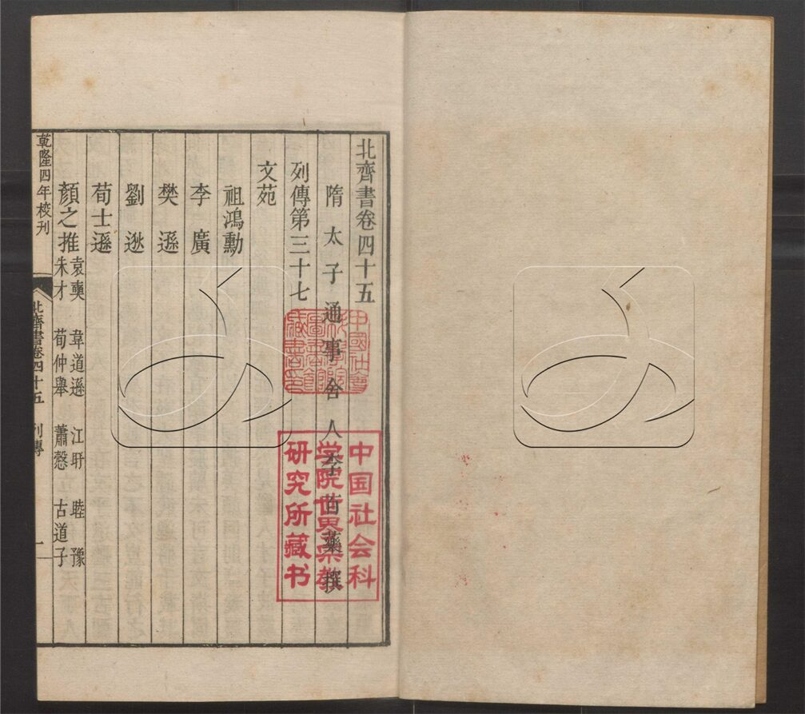 北齊書卷四十五
隋太子通事舍人李百藥撰
列傳第三十七
文苑
祖鴻勳
李廣
樊遜
劉逖
荀士遜
顏之推
袁奭 韋道遜 江旰 睦豫
朱才 荀仲舉 蕭慤 古道子
乾隆四年校刊
北齊書卷四十五 列傳 一
中国社会科
学院世界宗教
研究所藏书